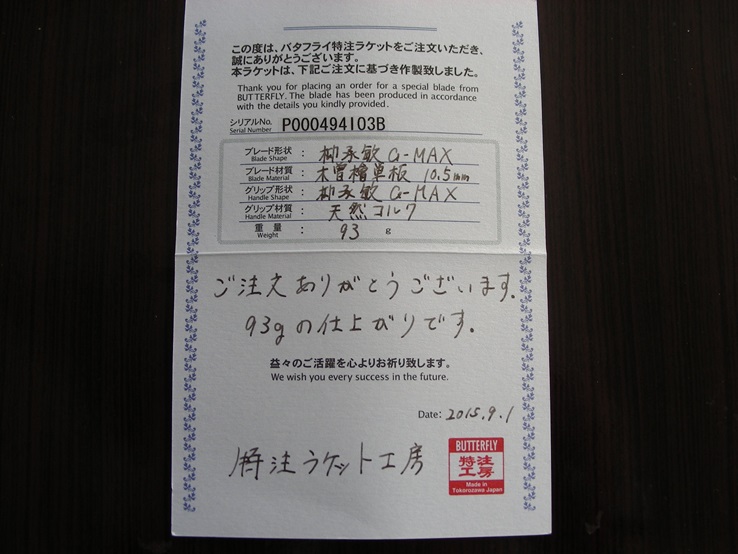 この度は、バタフライ特注ラケットをご注文いただき、
誠にありがとうございます。
本ラケットは、下記ご注文に基づき作製致しました。
Thank you for placing an order for a special blade from
BUTTERFLY. The blade has been produced in accordance
with the details you kindly provided.
シリアルNo. P000494103B
Serial Number
ブレード形状 : 柳承敏 G-MAX
Blade Shape
ブレード材質 : 木曽檜単板 10.5mm
Blade Material
グリップ形状 : 柳承敏 G-MAX
Handle Shape
グリップ材質 : 天然コルク
Handle Material
重量 : 93 g
Weight
ご注文ありがとうございます.
93gの仕上がりです.
益々のご活躍を心よりお祈り致します。
We wish you every success in the future.
Date: 2015.9.1
特注ラケット工房
BUTTERFLY
特注
工房
Made in
Tokorozawa Japan